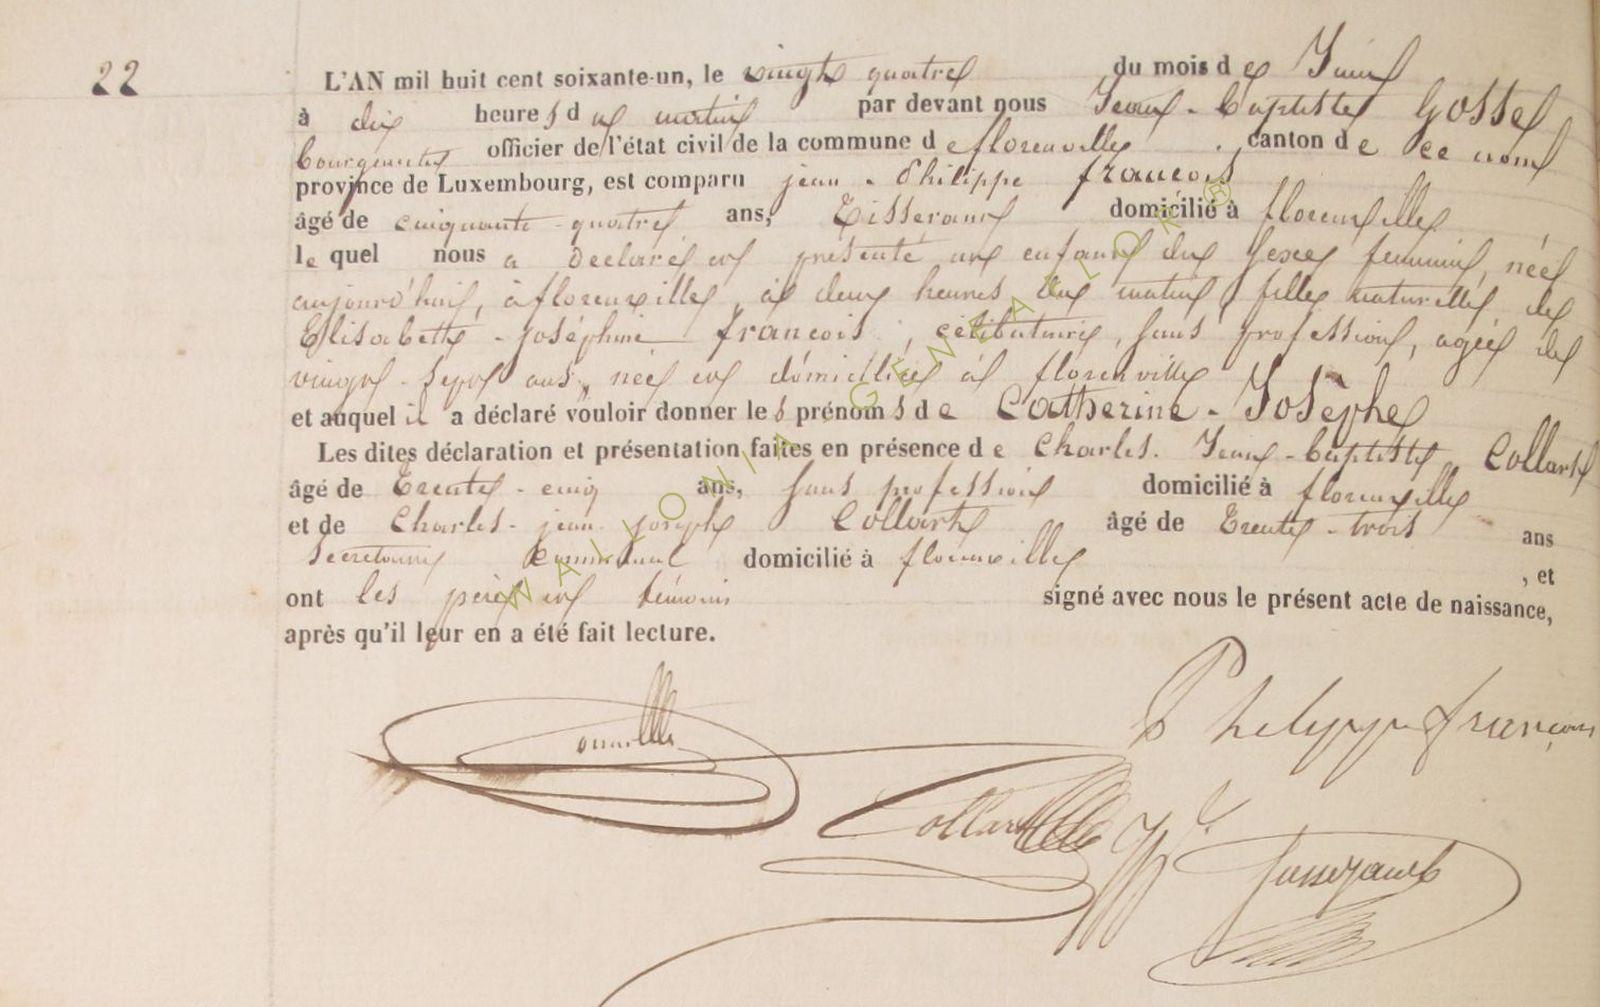 22
L'AN mil huit cent soixante-un, le vingt quatre du mois de Juin
à dix heures du matin par devant nous Jean-Baptiste Gosse
bourgmestre officier de l'état civil de la commune de florenville, canton de ce nom
province de Luxembourg, est comparu jean-Philippe françois
âgé de cinquante-quatre ans, Tisserand domicilié à florenville
le quel nous a déclaré et présenté un enfant du sexe feminin, née
aujourd'hui, à florenville, à deux heures du matin, fille naturelle de
Elisabeth-joséphine françois, célibataire, sans profession, agée de
vingt-sept ans, née et domiciliée à florenville
et auquel il a déclaré vouloir donner les prénoms de Catherine-Josèphe
Les dites déclaration et présentation faites en présence de Charles-Jean-baptiste Collart
âgé de Trente-cinq ans, sans profession domicilié à florenville
et de Charles-jean-joseph Collart âgé de Trente-trois ans
Secretaire Communal domicilié à florenville, et
ont les père et témoins signé avec nous le présent acte de naissance,
après qu'il leur en a été fait lecture.
WALLONIA GENEALOR ®
Philippe françois
Collart